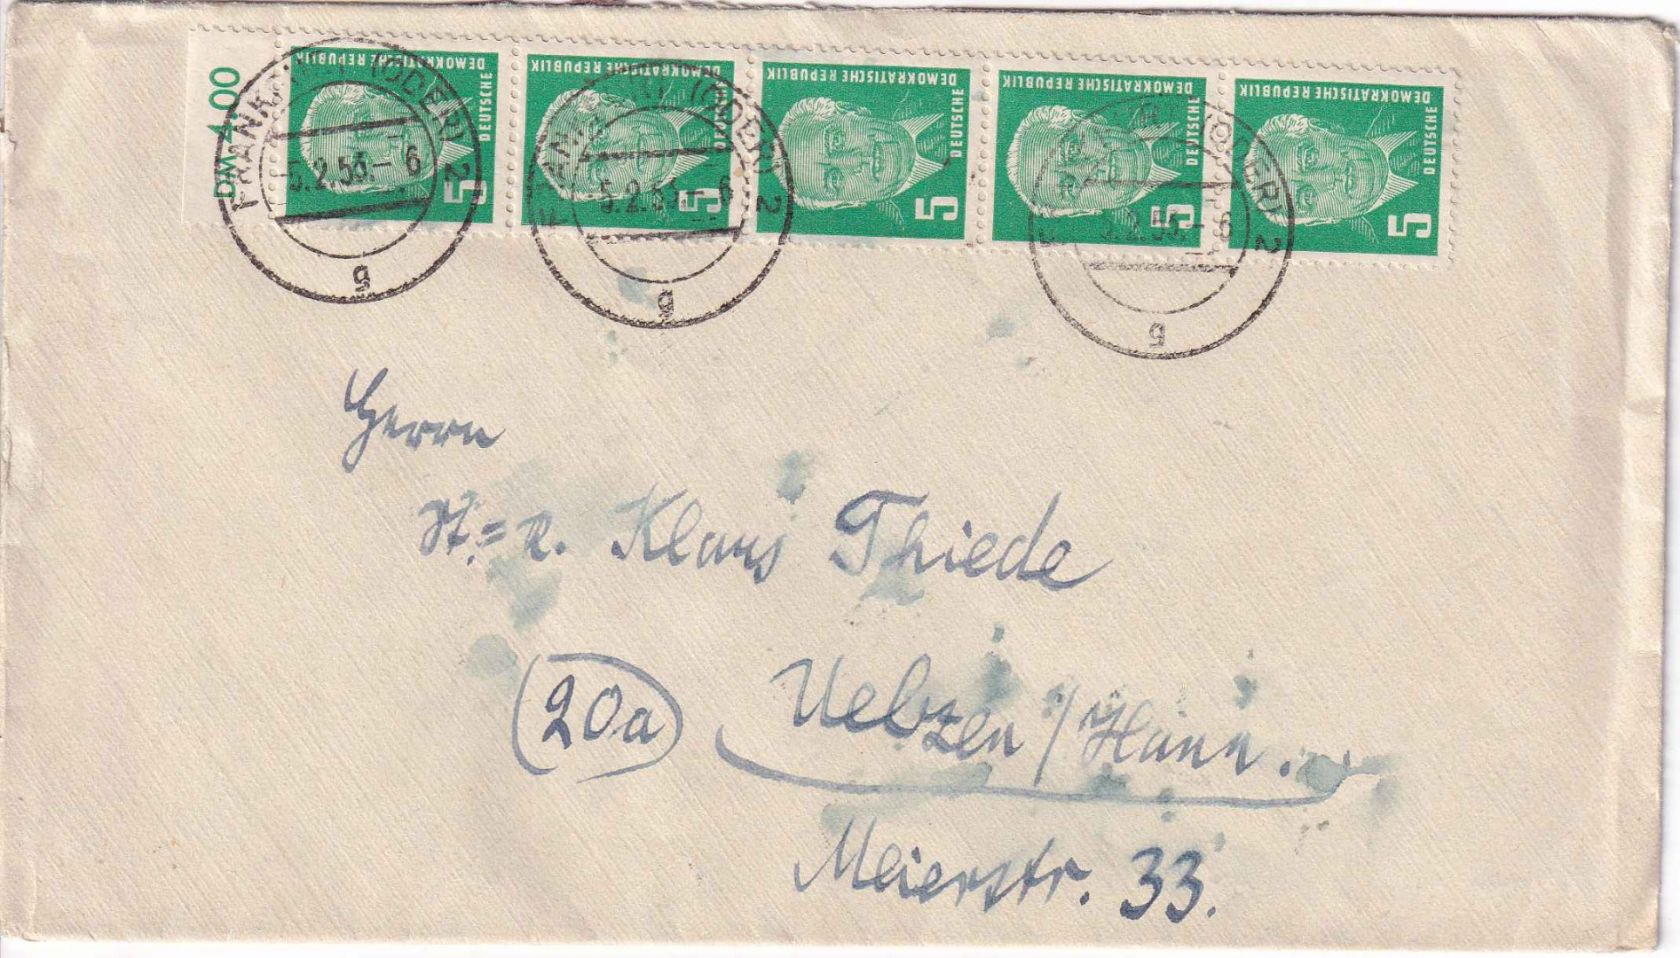 DM 4.00
DEUTSCHE DEMOKRATISCHE REPUBLIK 5
DEUTSCHE DEMOKRATISCHE REPUBLIK 5
DEUTSCHE DEMOKRATISCHE REPUBLIK 5
DEUTSCHE DEMOKRATISCHE REPUBLIK 5
DEUTSCHE DEMOKRATISCHE REPUBLIK 5
FRANKFURT (ODER) 2
5.2.53.-6
g
FRANKFURT (ODER) 2
5.2.53.-6
g
(ODER) 2
5.2.53.-6
g
Herrn
St.=R. Klaus Thiede
20a Uelzen / Hann.
Meierstr. 33.